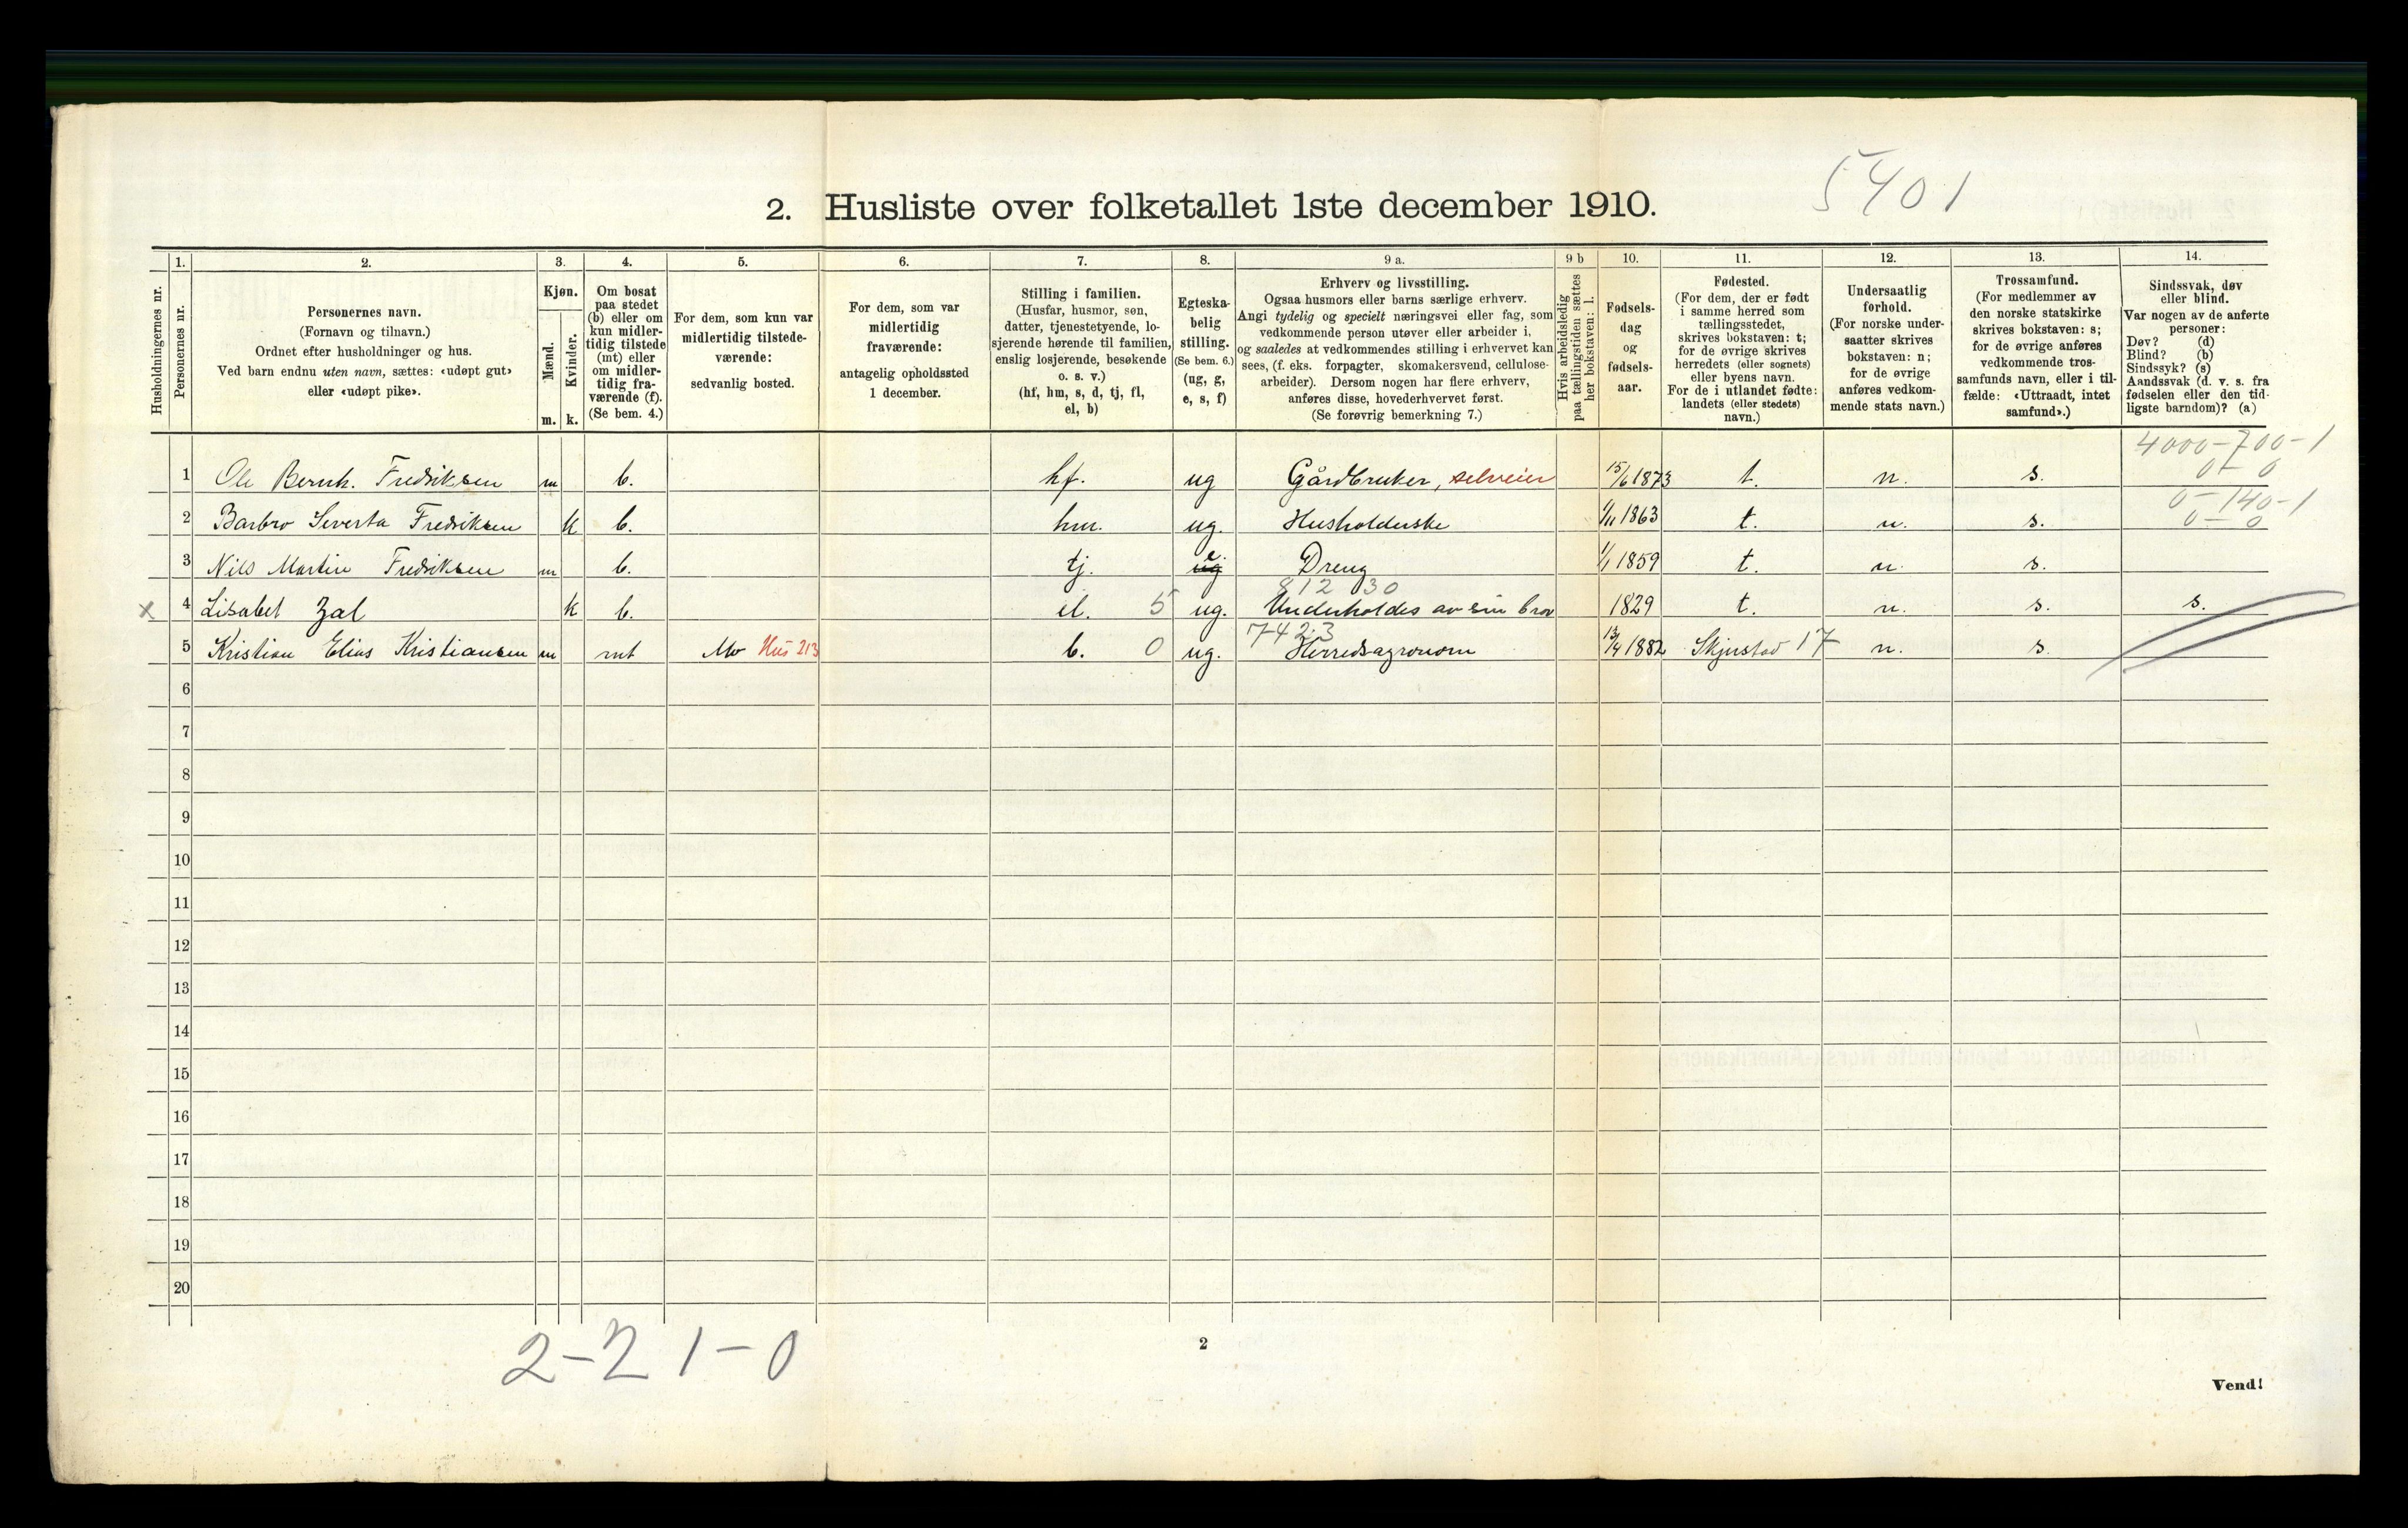 5401
2. Husliste over folketallet 1ste december 1910.
Husholdningernes nr.
1.
Personernes nr.
2.
Personernes navn.
(Fornavn og tilnavn.)
Ordnet efter husholdninger og hus.
Ved barn endnu uten navn, sættes: «udøpt gut»
eller «udøpt pike».
3.
Kjøn.
Mænd.
Kvinder.
m. k.
4.
Om bosat
paa stedet
(b) eller om
kun midler-
tidig tilstede
(mt) eller
om midler-
tidig fra-
værende (f).
(Se bem. 4.)
5.
For dem, som kun var
midlertidig tilstede-
værende:
sedvanlig bosted.
6.
For dem, som var
midlertidig
fraværende:
antagelig opholdssted
1 december.
7.
Stilling i familien.
(Husfar, husmor, søn,
datter, tjenestetyende, lo-
sjerende hørende til familien,
enslig losjerende, besøkende
o. s. v.)
(hf, hm, s, d, tj, fl,
el, b)
8.
Egteska-
belig
stilling.
(Se bem. 6.)
(ug, g,
e, s, f)
9 a.
Erhverv og livsstilling.
Ogsaa husmors eller barns særlige erhverv.
Angi tydelig og specielt næringsvei eller fag, som
vedkommende person utøver eller arbeider i,
og saaledes at vedkommendes stilling i erhvervet kan
sees, (f. eks. forpagter, skomakersvend, cellulose-
arbeider). Dersom nogen har flere erhverv,
anføres disse, hovederhvervet først.
(Se forøvrig bemerkning 7.)
9 b
Hvis arbeidsledig
paa tællingstiden sættes
her bokstaven: l.
10.
Fødsels-
dag
og
fødsels-
aar.
11.
Fødested.
(For dem, der er født
i samme herred som
tællingsstedet,
skrives bokstaven: t;
for de øvrige skrives
herredets (eller sognets)
eller byens navn.
For de i utlandet fødte:
landets (eller stedets)
navn.)
12.
Undersaatlig
forhold.
(For norske under-
saatter skrives
bokstaven: n;
for de øvrige
anføres vedkom-
mende stats navn.)
13.
Trossamfund.
(For medlemmer av
den norske statskirke
skrives bokstaven: s;
for de øvrige anføres
vedkommende tros-
samfunds navn, eller i til-
fælde: «Uttraadt, intet
samfund».)
14.
Sindssvak, døv
eller blind.
Var nogen av de anførte
personer:
Døv? (d)
Blind? (b)
Sindssyk? (s)
Aandssvak (d. v. s. fra
fødselen eller den tid-
ligste barndom)? (a)
4000-700-1
0-0
1 Ole Bernh. Fredriksen m b. hf. ug Gårdbruker, selveier 15/6 1873 t. n. s.
0-140-1
0-0
2 Barbro Severta Fredriksen k b. hm. ug. Husholderske 1/11 1863 t. n. s.
3 Nils Martin Fredriksen m b. tj. ug e. Dreng 1/1 1859 t. n. s.
812 30
x 4 Lisabet Zal k b. el. 5 ug. Underholdes av sin bror 1829 t. n. s. s.
7423
5 Kristian Elias Kristiansen m mt Mo Hus 213 b. 0 ug. Herredsagronom 13/4 1882 Skjerstad 17 n. s.
6
7
8
9
10
11
12
13
14
15
16
17
18
19
20
2-2 1-0
2
Vend!